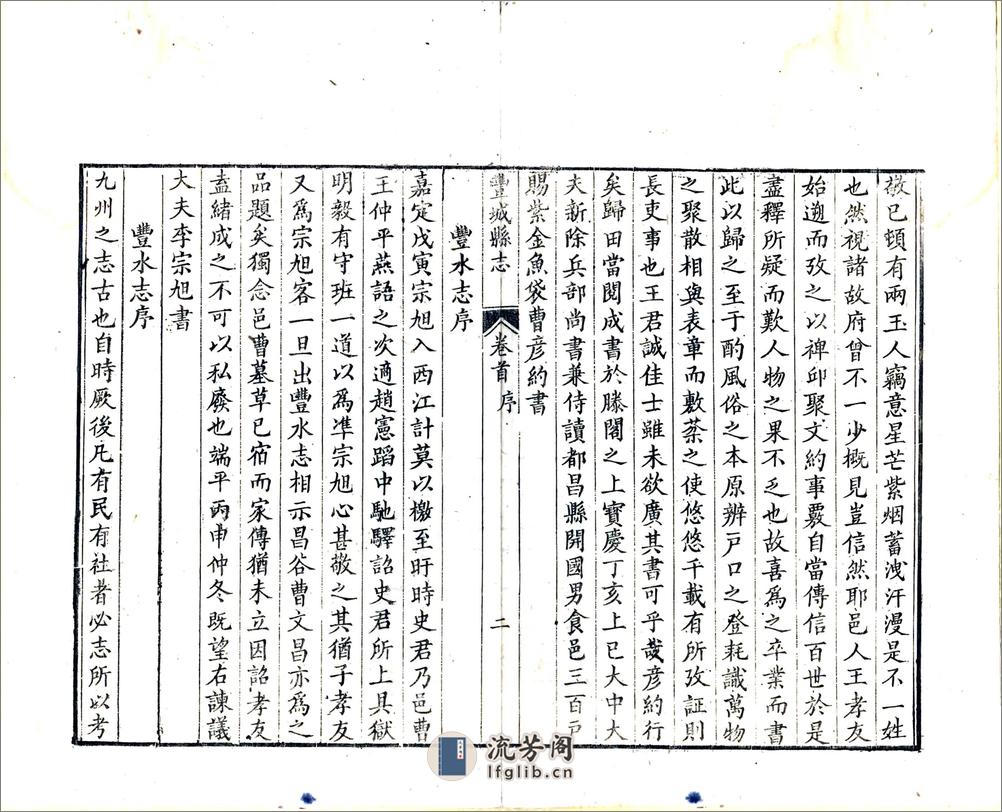 敬已頓有兩玉人竊意星芒紫烟蓄洩汗漫是不一姓
也然視諸故府曾不一少概見豈信然耶邑人王孝友
始遡而攷之以稗邱聚文約事覈自當傳信百世於是
盡釋所疑而歎人物之果不乏也故喜為之卒業而書
此以歸之至于酌風俗之本原辨戸口之登耗識萬物
之聚散相與表章而敷菜之使悠悠千載有所攷証則
長吏事也王君誠佳士雖未欲廣其書可乎哉彦約行
矣歸田當閱成書於滕閣之上寶慶丁亥上巳大中大
夫新除兵部尚書兼侍讀都昌縣開國男食邑三百戸
賜紫金魚袋曹彦約書
豐城縣志
卷首 序
二
豐水志序
嘉定戊寅宗旭入西江計莫以檄至旴時史君乃邑曹
王仲平燕語之次適趙憲蹈中馳驛詔史君所上具獄
明毅有守班一道以為準宗旭心甚敬之其猶子孝友
又為宗旭客一旦出豐水志相示昌谷曹文昌亦為之
品題矣獨念邑曹墓草已宿而家傳猶未立因詔孝友
盍緒成之不可以私廢也端平丙申仲冬既望右諫議
大夫李宗旭書
豐水志序
九州之志古也自時厥後凡有民有社者必志所以考
流芳阁
lfglib.cn